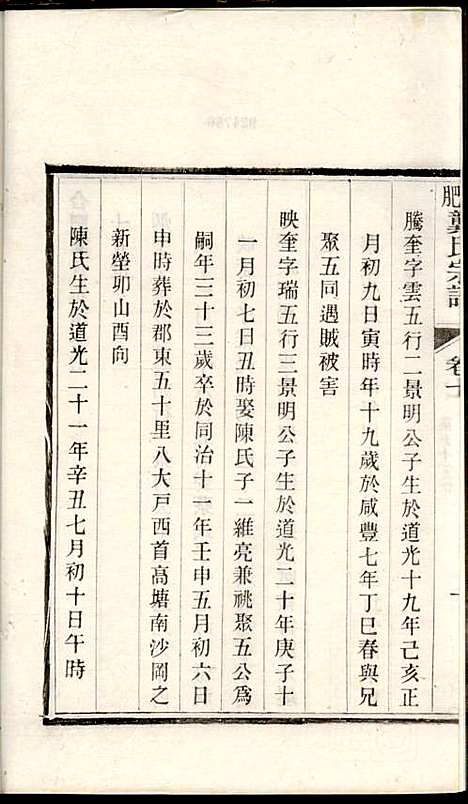 肥龔氏宗譜
卷十
騰奎字雲五行二景明公子生於道光十九年己亥正
月初九日寅時年十九歲於咸豐七年丁巳春與兄
聚五同遇賊被害
映奎字瑞五行三景明公子生於道光二十年庚子十
一月初七日丑時娶陳氏子一維亮兼祧聚五公為
嗣年三十三歲卒於同治十一年壬申五月初六日
申時葬於郡東五十里八大戸西首高塘南沙岡之
新塋卯山酉向
陳氏生於道光二十一年辛丑七月初十日午時